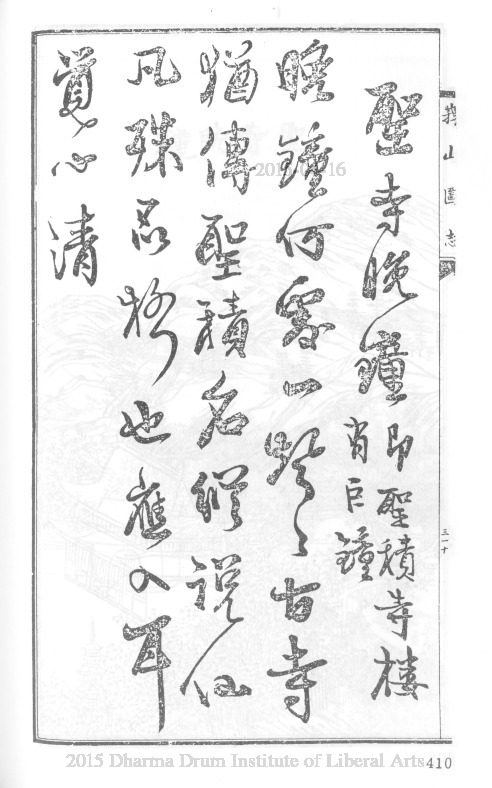 峩山圖志
三一十
聖寺晚鐘 即聖積寺樓
有巨鐘
晚鐘何處一聲〻古寺
猶傳聖積名縱說仙
凡殊品格也應入耳
覺心清
2015 Dharma Drum Institute of Liberal Arts
410